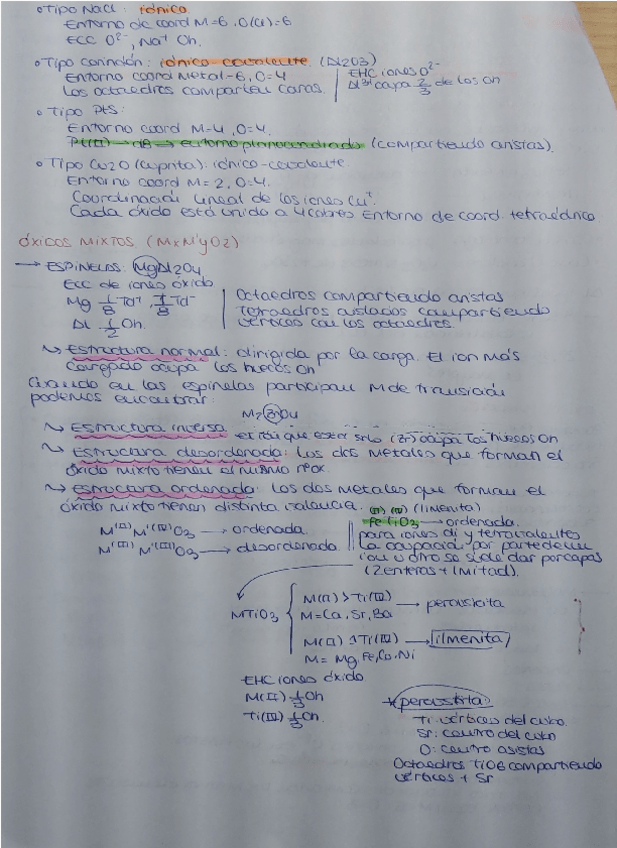 • Tipo NaCl: iónico.
Entorno de coord M=6, O(Cl)=6
ECC O²⁻, Na⁺ Oh.
• Tipo corindón: iónico-covalente. (Al2O3)
Entorno coord Metal=6, O=4
Los octaedros comparten caras.
EHC iones O²⁻
Al³⁺ ocupa 2/3 de los Oh
• Tipo PtS:
Entorno coord M=4, O=4.
Pt(II) → d8 → entorno planocuadrado (compartiendo aristas).
• Tipo Cu2O (cuprita): iónico-covalente.
Entorno coord M=2, O=4.
Coordinación lineal de los iones Cu⁺.
Cada óxido está unido a 4 cobres Entorno de coord. tetraédrico
ÓXIDOS MIXTOS (MxM'yO2)
→ ESPINELAS: MgAl2O4
ECC de iones óxido
Mg 1/8 Td⁺, 1/8 Td⁻
Al 1/2 Oh.
Octaedros compartiendo aristas
Tetraedros aislados compartiendo
vértices con los octaedros
↳ Estructura normal: dirigida por la carga. El ion más
cargado ocupa los huecos Oh
Cuando en las espinelas participan M de transición
podemos encontrar:
↳ Estructura inversa ocupa los huecos Oh
↳ Estructura desordenada: los dos metales que forman el
óxido mixto tienen el mismo nºox.
↳ Estructura ordenada: los dos metales que forman el
óxido mixto tienen distinta valencia.
(II) (IV) (ilmenita)
FeTiO3 → ordenada.
M(II)M'(IV)O3 → ordenada
M(III)M'(III)O3 → desordenada
para iones di y tetravalentes
la ocupación por parte de un
ion u otro se suele dar por capas
(2 enteros + 1 mitad).
MTiO3
M(II) > Ti(IV)
M=Ca, Sr, Ba
→ perovskita
M(II) Ti(IV) → ilmenita
M= Mg Fe, Co, Ni
EHC iones óxido
M(II) 1/3 Oh
Ti(IV) 1/3 Oh.
* perovskita:
Ti: vértices del cubo.
Sr: centro del cubo
O: centro aristas
Octaedros TiO6 compartiendo
vértices + Sr